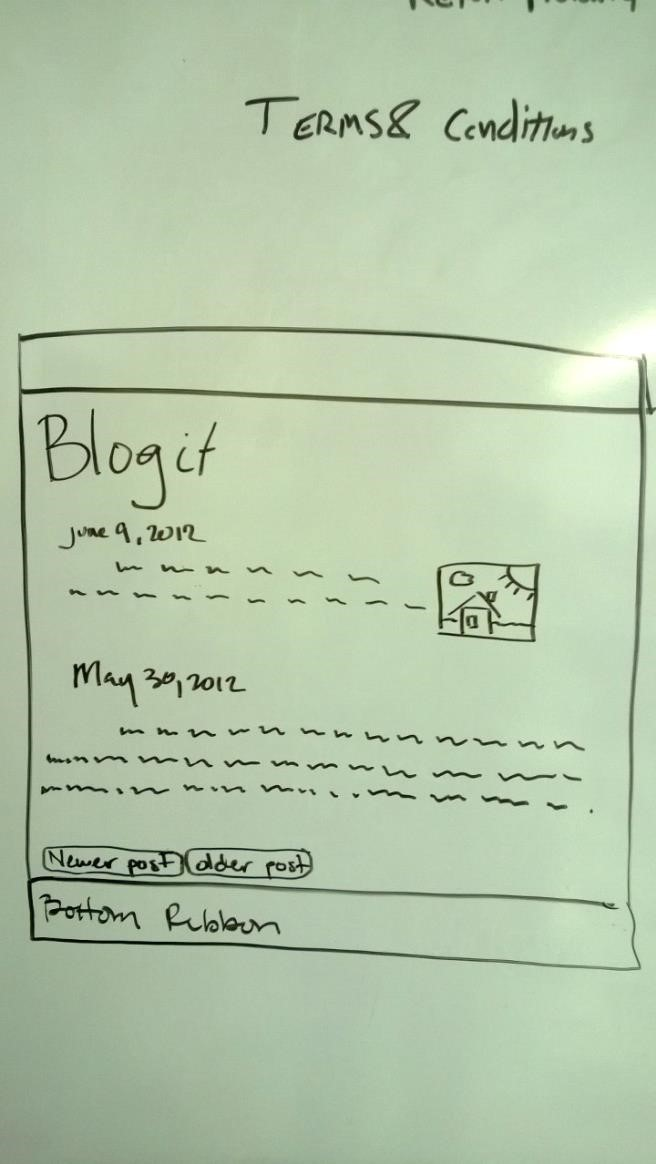 TERMS & Conditions
Blogit
june 9, 2012
May 30, 2012
Newer post older post
Bottom Ribbon